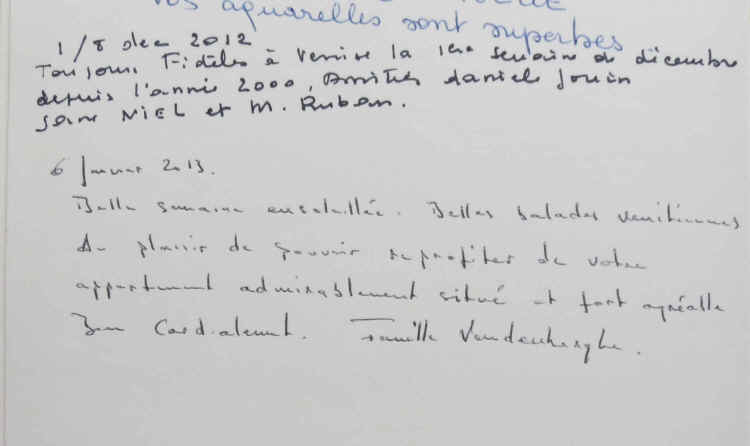 vos aquarelles sont superbes
1/8 dec 2012
Toujours Fidèles à Venise la 1ere semaine de décembre
depuis l'année 2000, Amitiés daniele Jouin
NIEL et M. Ruban.
6 Janvier 2013.
Belle semaine ensoleillée. Belles balades venitiennes
Au plaisir de pouvoir reprofiter de votre
appartement admirablement situé et fort agréable
Bien Cordialement. Famille Vandenberghe.